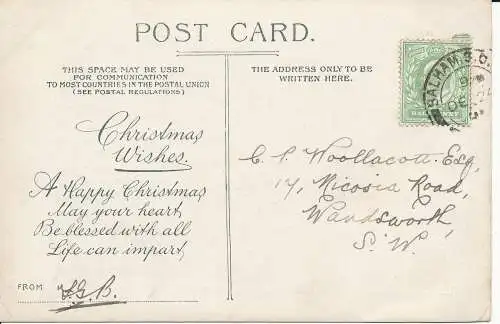 POST CARD.
THIS SPACE MAY BE USED
FOR COMMUNICATION
TO MOST COUNTRIES IN THE POSTAL UNION
(SEE POSTAL REGULATIONS)
THE ADDRESS ONLY TO BE
WRITTEN HERE.
BALHAM. S.O.
Christmas
Wishes.
A Happy Christmas
May your heart
Be blessed with all
Life can impart
FROM
C. P. Woollacott Esq,
17, Nicosia Road,
Wandsworth,
S.W.